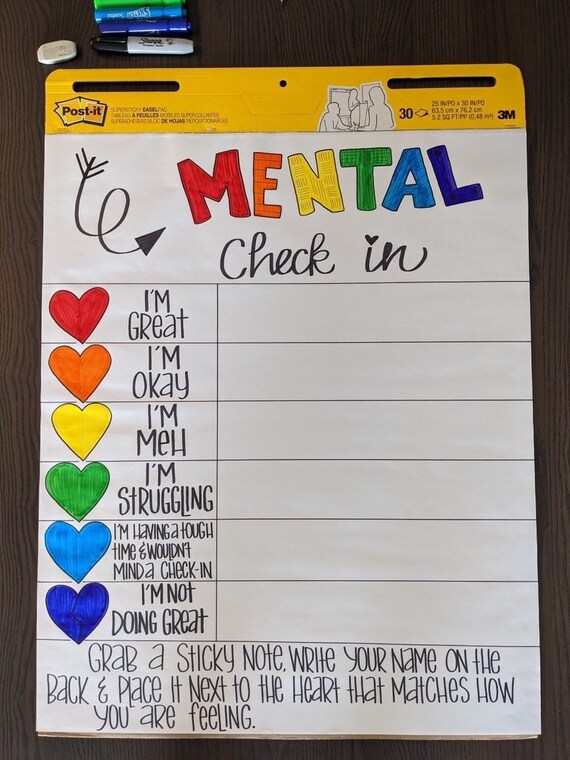 Sharpie
Post-it
SUPERSTICKY EASEL PAD
TABLEAU À FEUILLES MOBILES SUPERCOLLANTES
SUPERADHESIVO BLOC DE HOJAS REPOSITIONABLES
30
25 IN/PO x 30 IN/PO
63,5 cm x 76,2 cm
5.2 SQ FT/PP (0,48 m²)
3M
MENTAL
Check in
I'M
GReat
I'M
OKAY
I'M
MeH
I'M
STRUGGLING
I'M HAVING a tOUGH
tIMe & WOULDN't
MIND a CHeCK-IN
I'M NOt
DOING GReat
GRAB a STICKY NOte, WRIte YOUR NAMe ON tHe
BaCK & PLaCe It NeXt tO tHe HeaRt tHat MatCHeS HOW
YOU aRe FeeLING.